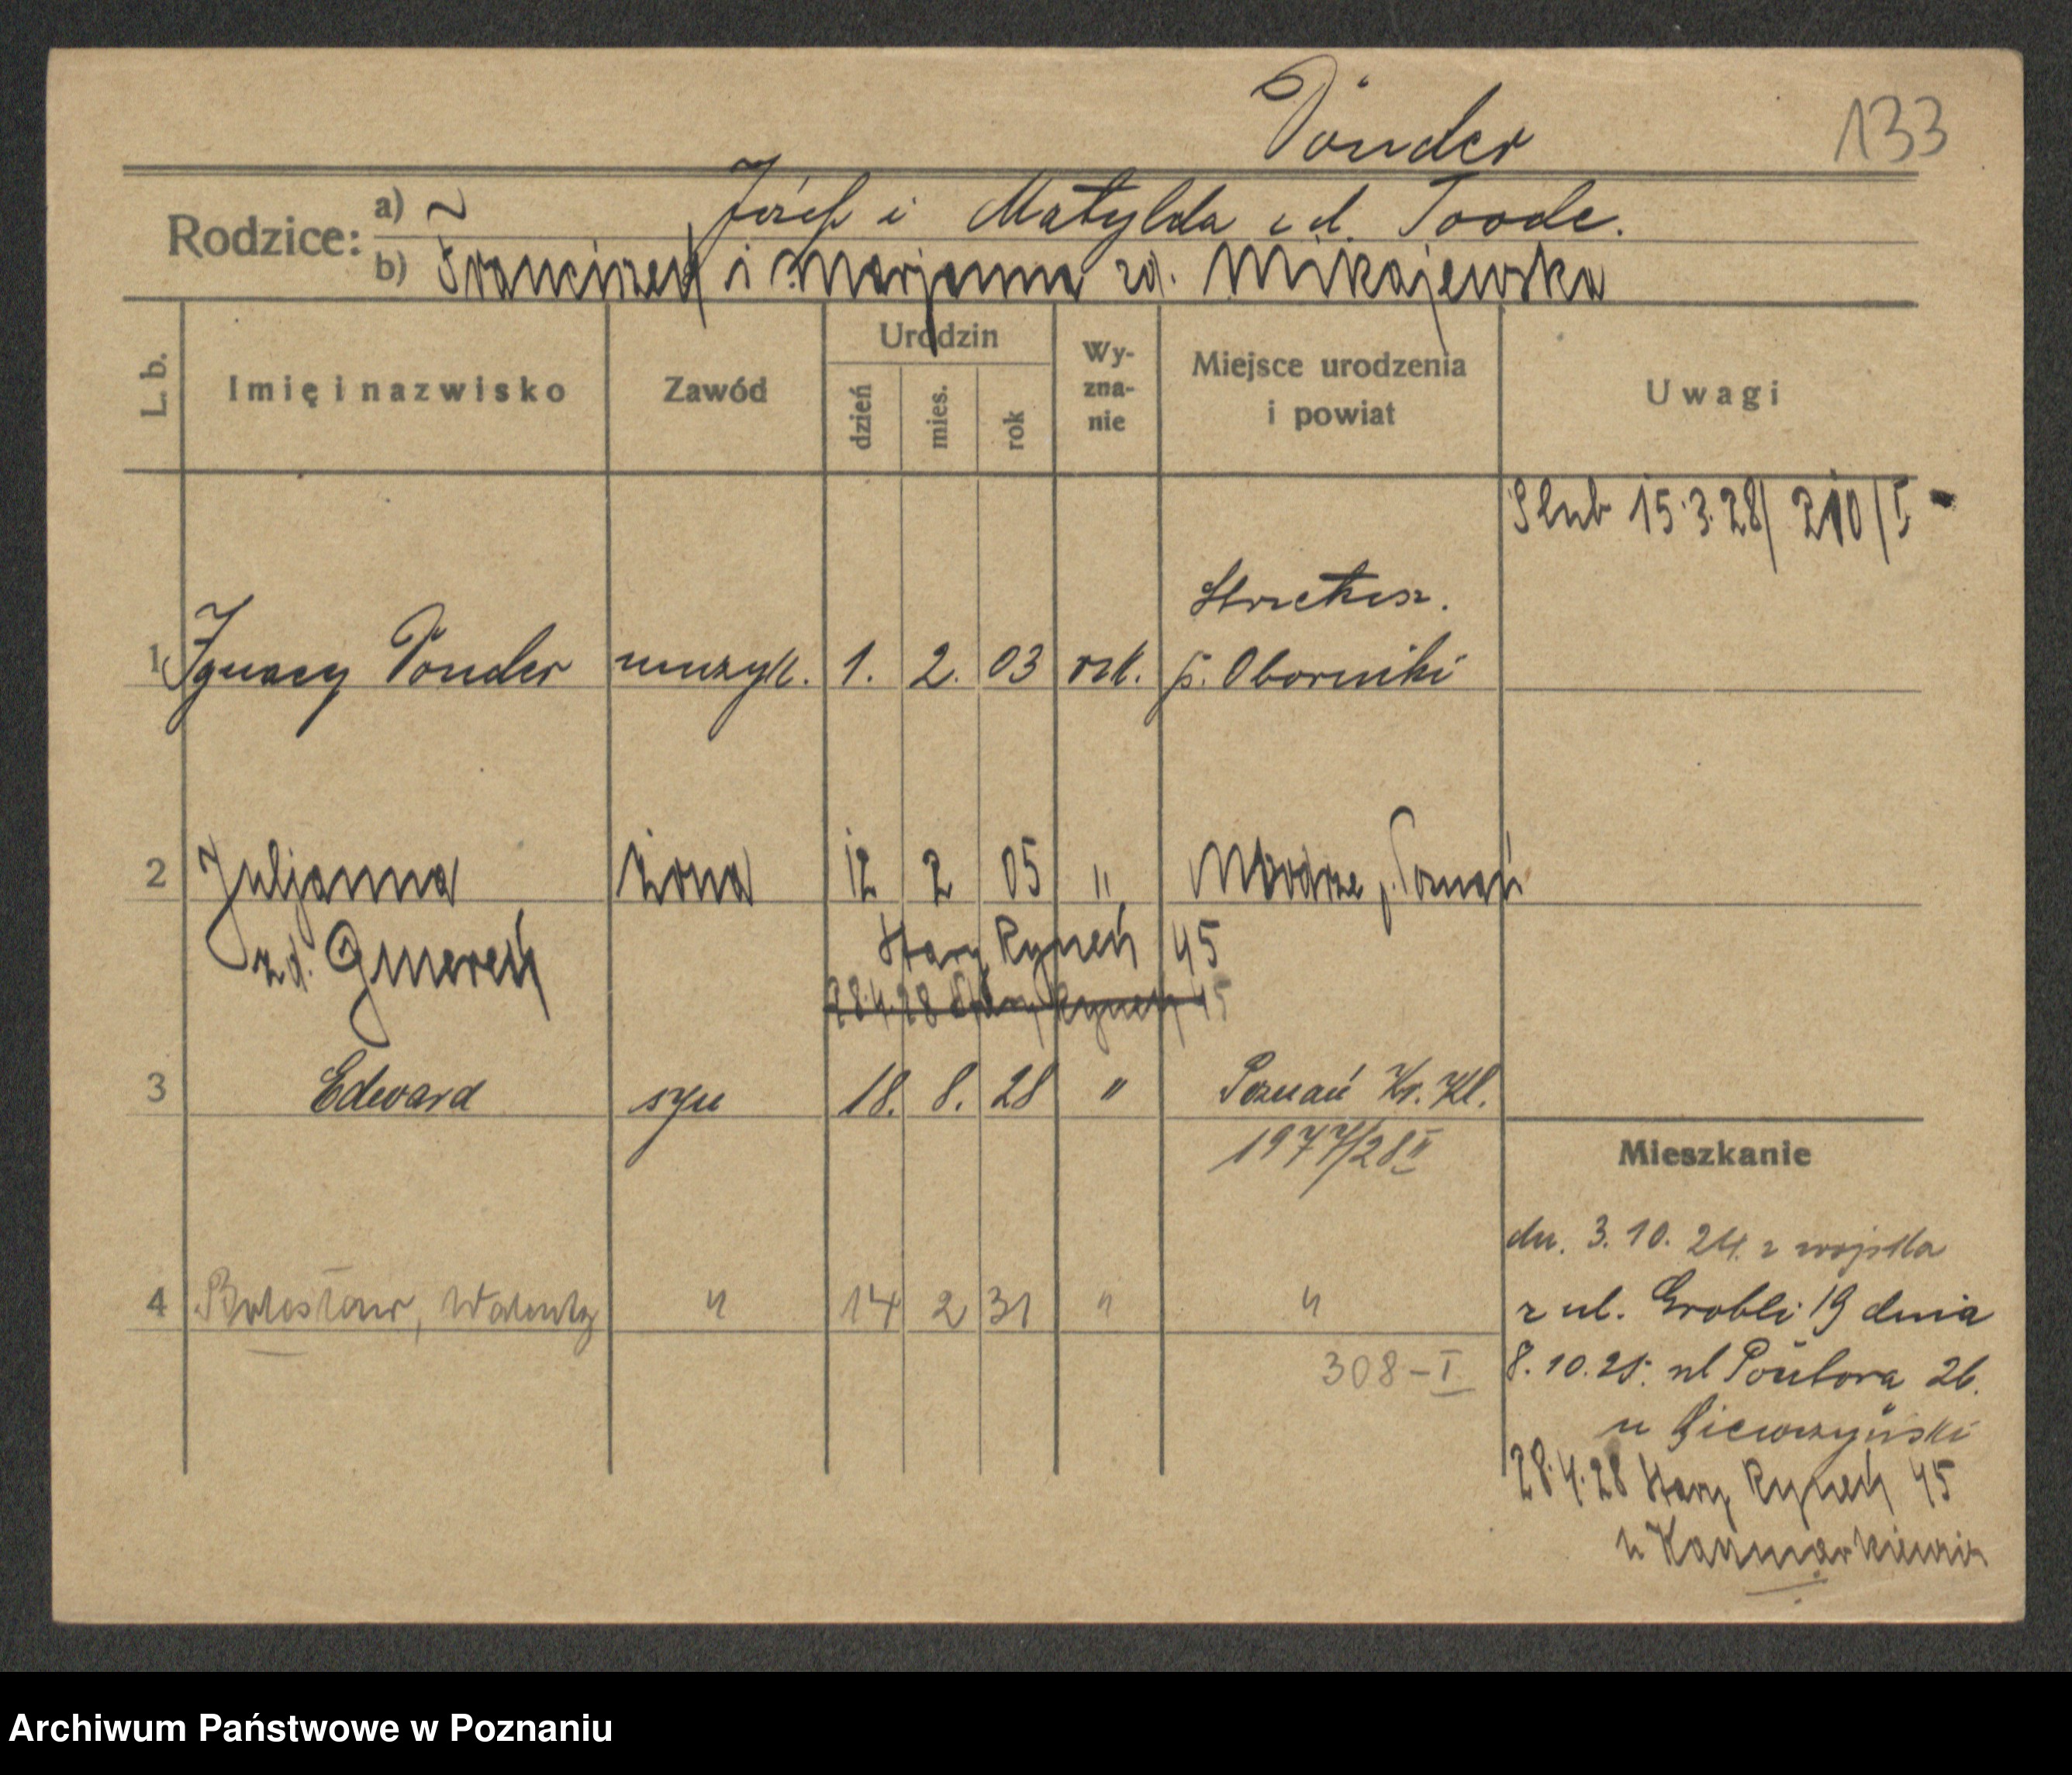 Ponder
133
Rodzice:
a) Józef i Matylda z d. Toode.
b) Franciszek i Marjanna zd. Mikajewska
L. b.
Imię i nazwisko
Zawód
Urodzin
dzień
mies.
rok
Wy-
zna-
nie
Miejsce urodzenia
i powiat
Uwagi
Slub 15.3.28/ 210/I
1 Ignacy Ponder muzyk. 1. 2. 03 rzk. p. Oborniki
2 Juljanna żona 12 2 05 " Modrze p. Poznań
zd.
Stary Rynek 45
28.4.28 Stary Rynek 45
3 Edward syn 18. 8. 28 " Poznań Kr. Kl.
1977/28 II
Mieszkanie
4 Bolesław, Walenty " 14 2 31 " "
308-I
dn. 3. 10. 24. z wojska
z ul. Grobli 19 dnia
8. 10. 25. ul 26.
u
28.4.28 Stary Rynek 45
u Kaczmarkiewicz
Archiwum Państwowe w Poznaniu